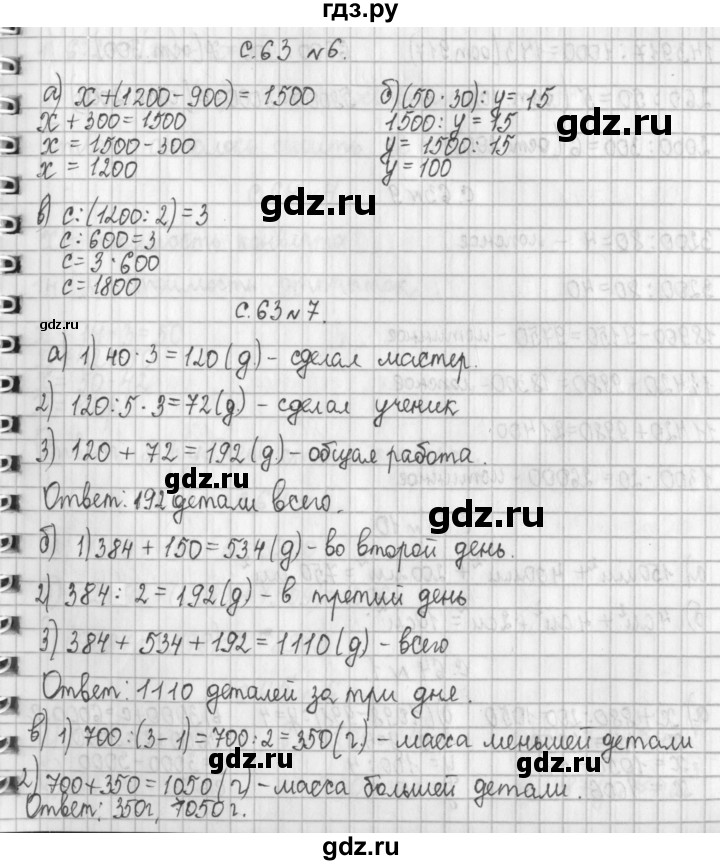 гдз.ру
с.63 №6.
а) х+(1200-900)=1500
х+300=1500
х=1500-300
х=1200
б)(50·30):у=15
1500:у=15
у=1500:15
у=100
gdz.ru
в) с:(1200:2)=3
с:600=3
с=3·600
с=1800
gdz.ru
gdz.ru
с.63 №7.
а) 1) 40·3=120(д) - сделал мастер.
2) 120:5·3=72(д) - сделал ученик
3) 120+72=192(д) - общая работа.
gdz.ru
Ответ: 192 детали всего.
gdz.ru
б) 1) 384+150=534(д) - во второй день.
2) 384:2=192(д) - в третий день
3) 384+534+192=1110(д) - всего
gdz.ru
Ответ: 1110 деталей за три дне.
в) 1) 700:(3-1)=700:2=350(г.) - масса меньшей детали
gdz.ru
gdz.ru
2) 700+350=1050(г) - масса большей детали.
Ответ: 350г, 1050г.
gdz.ru
gdz.ru